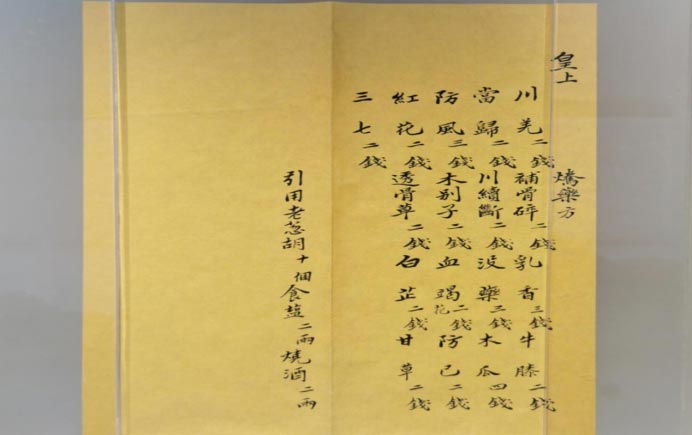 皇上 熥藥方
川羌二錢補骨碎二錢乳香三錢牛膝二錢
當歸二錢川續斷二錢沒藥三錢木瓜四錢
防風三錢木别子二錢血竭花二錢防已二錢
紅花二錢透骨草二錢白芷二錢甘草二錢
三七二錢
引用老葱胡十個食鹽二兩燒酒二兩